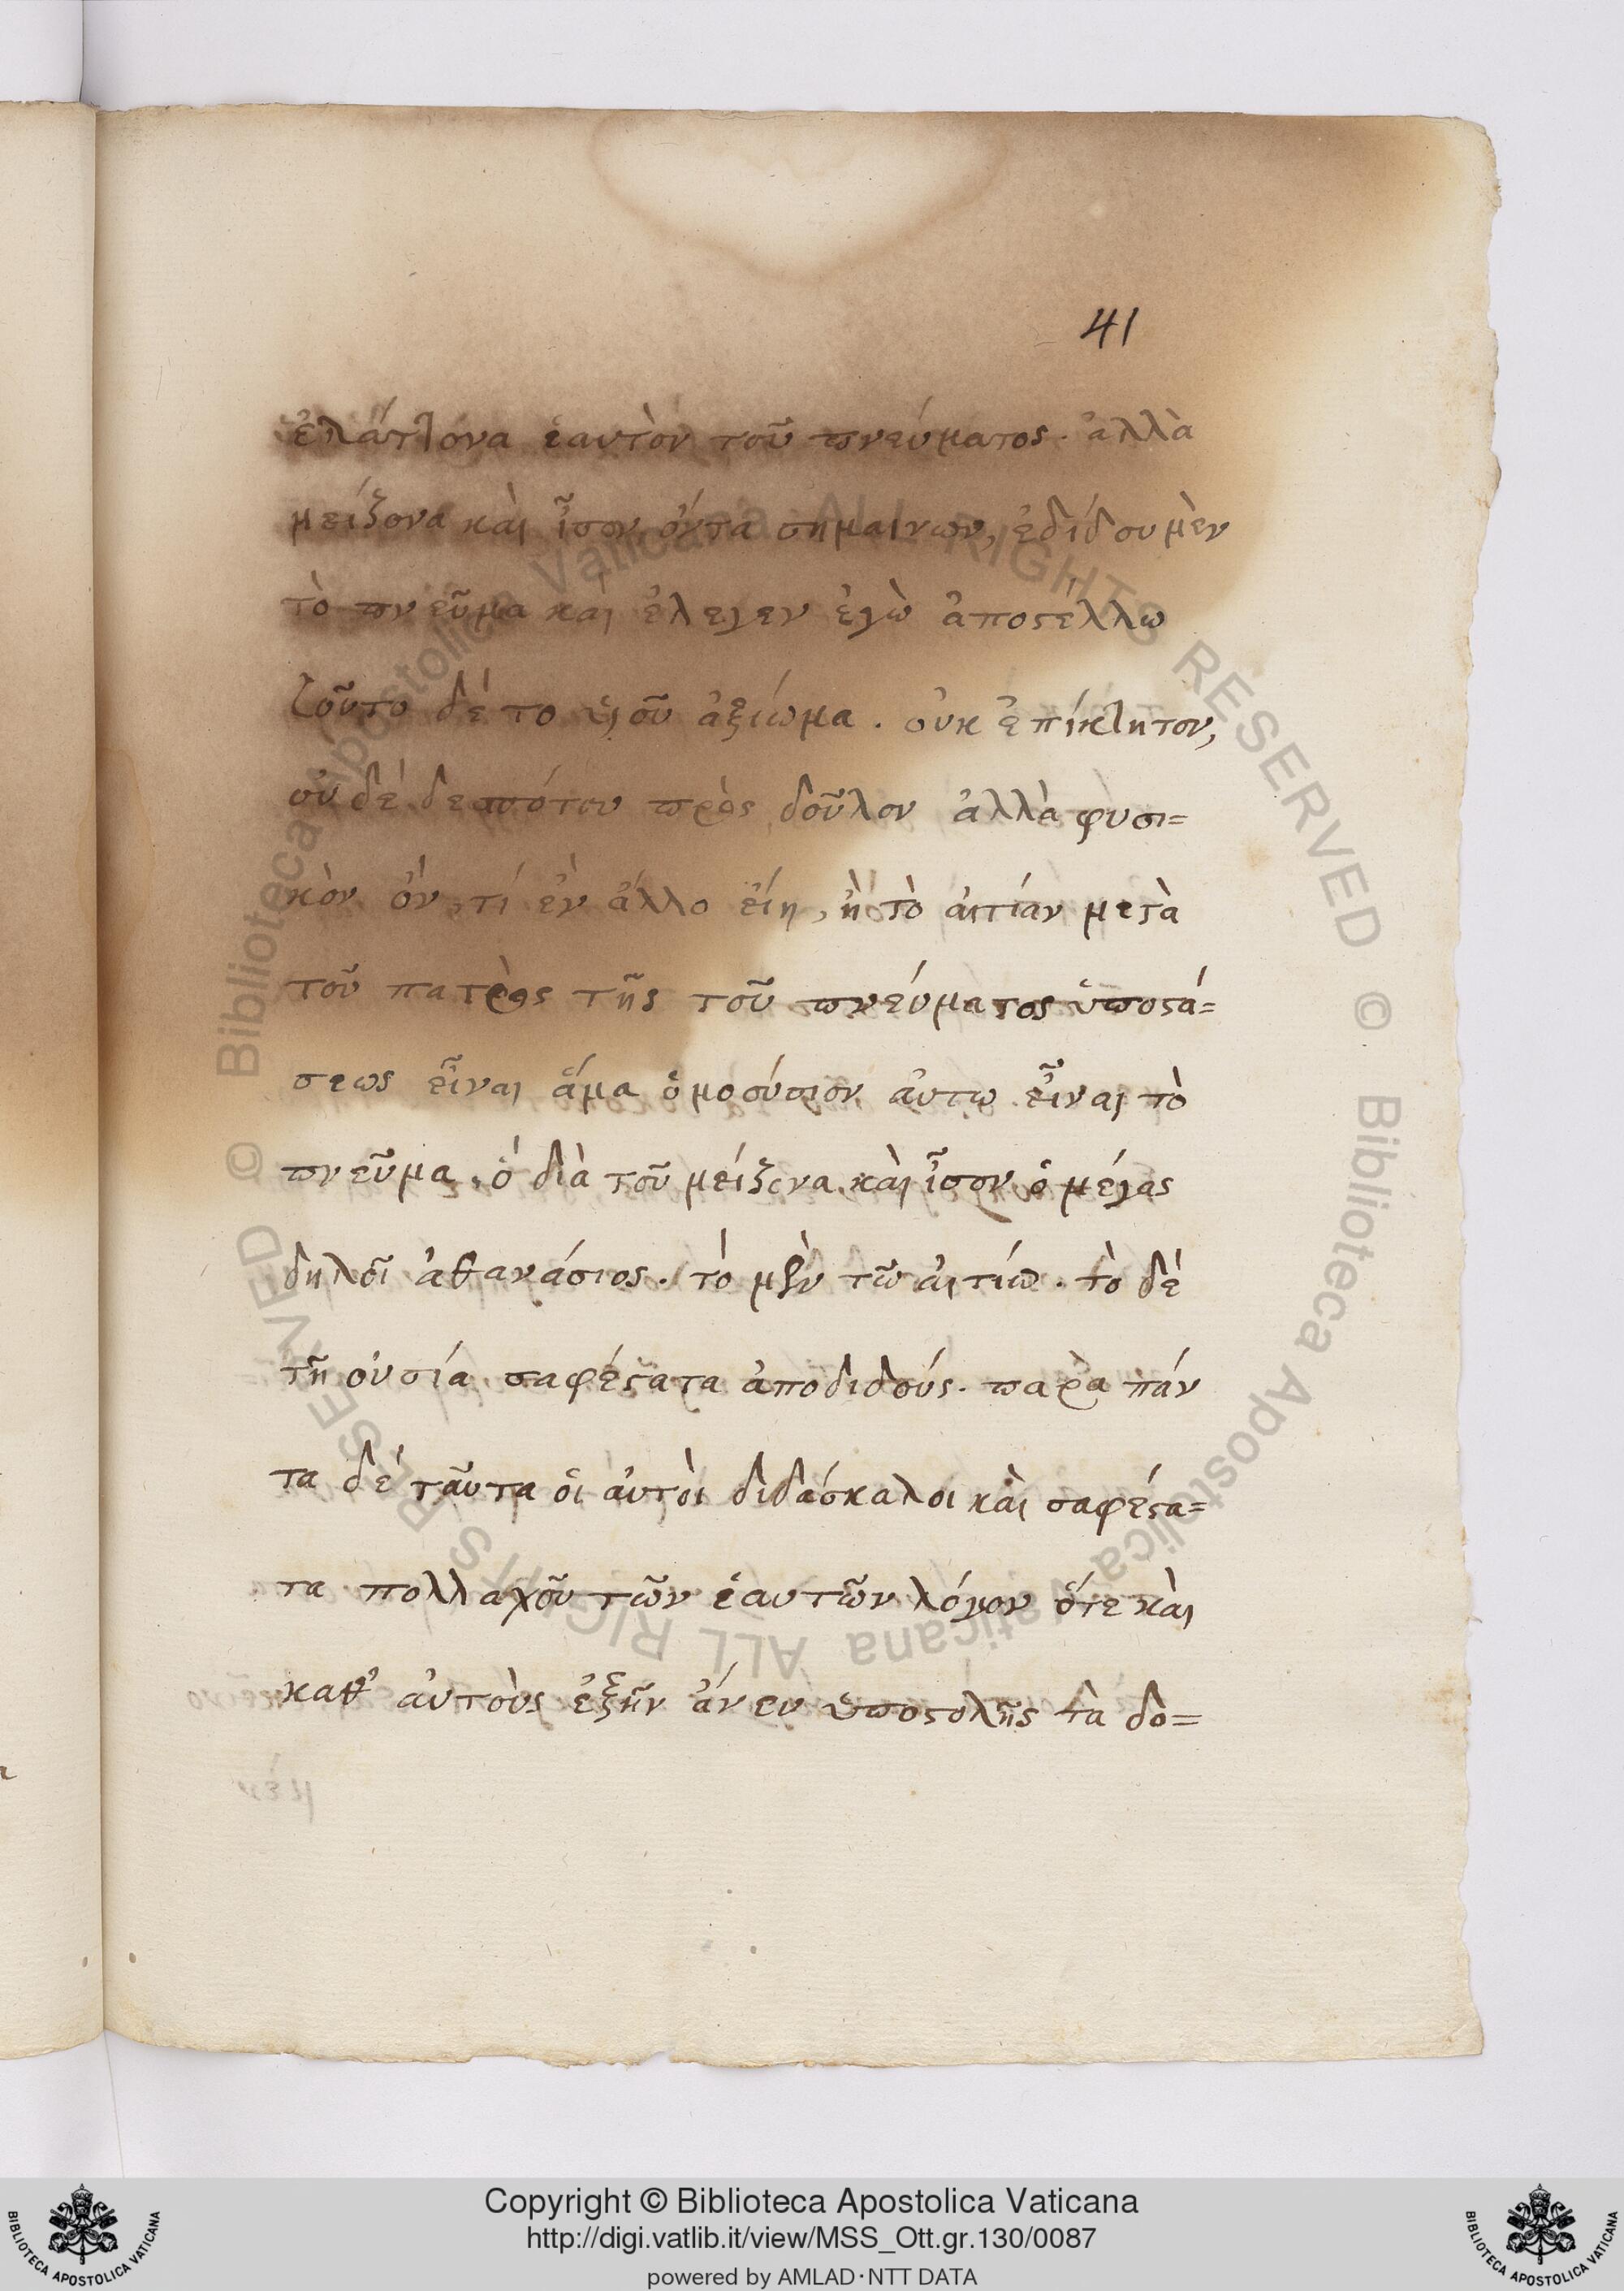 41
ἐλάττονα ἑαυτὸν τοῦ πνεύματος. ἀλλὰ
μείζονα καὶ ἶσον ὄντα σημαίνων, ἐδίδου μὲν
τὸ πνεῦμα καὶ ἔλεγεν ἐγὼ ἀποστέλλω
τοῦτο δέ το υἱοῦ ἀξίωμα. οὐκ ἐπίκλητον,
οὐδὲ δεσπότου πρὸς δοῦλον ἀλλὰ φυσι=
κὸν ὄν, τί ἐν ἄλλο εἴη, ἢ τὸ αἰτίαν μετὰ
τοῦ πατρὸς τῆς τοῦ πνεύματος ὑποστά=
σεως εἶναι ἅμα ὁμοούσιον αὐτω εἶναι τὸ
πνεῦμα. ὅ διὰ τοῦ μείζονα καὶ ἶσον ὁ μέγας
δηλοῖ ἀθανάσιος. τό μὲν τῶ αἰτίω. τὸ δὲ
τῆ οὐσία σαφέστατα ἀποδιδούς. παρὰ πάν
τα δέ ταῦτα οἱ αὐτοὶ διδάσκαλοι καὶ σαφέστα=
τα πολλαχοῦ τῶν ἑαυτῶν λόγον ὅτε καὶ
καθ' αὐτοὺς ἐξῆν ἄνευ ὑποστολῆς τὰ δο=
Copyright © Biblioteca Apostolica Vaticana
http://digi.vatlib.it/view/MSS_Ott.gr.130/0087
powered by AMLAD·NTT DATA
BIBLIOTECA APOSTOLICA VATICANA
BIBLIOTECA APOSTOLICA VATICANA
© Biblioteca Apostolica Vaticana ALL RIGHTS RESERVED © Biblioteca Apostolica Vaticana ALL RIGHTS RESERVED